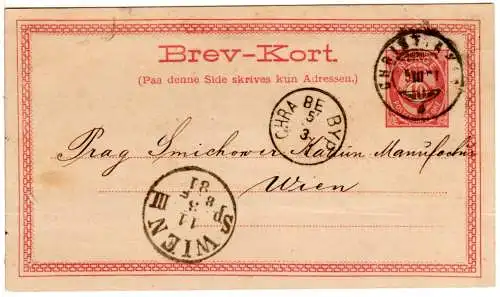 Brev-Kort.
(Paa denne Side skrives kun Adressen.)
CHRISTIANIA
5 III
10
4
CHRA BE BYP
5
3
Prag Smichower Kattun Manufactur
Wien
WIEN III
11
8 3
81